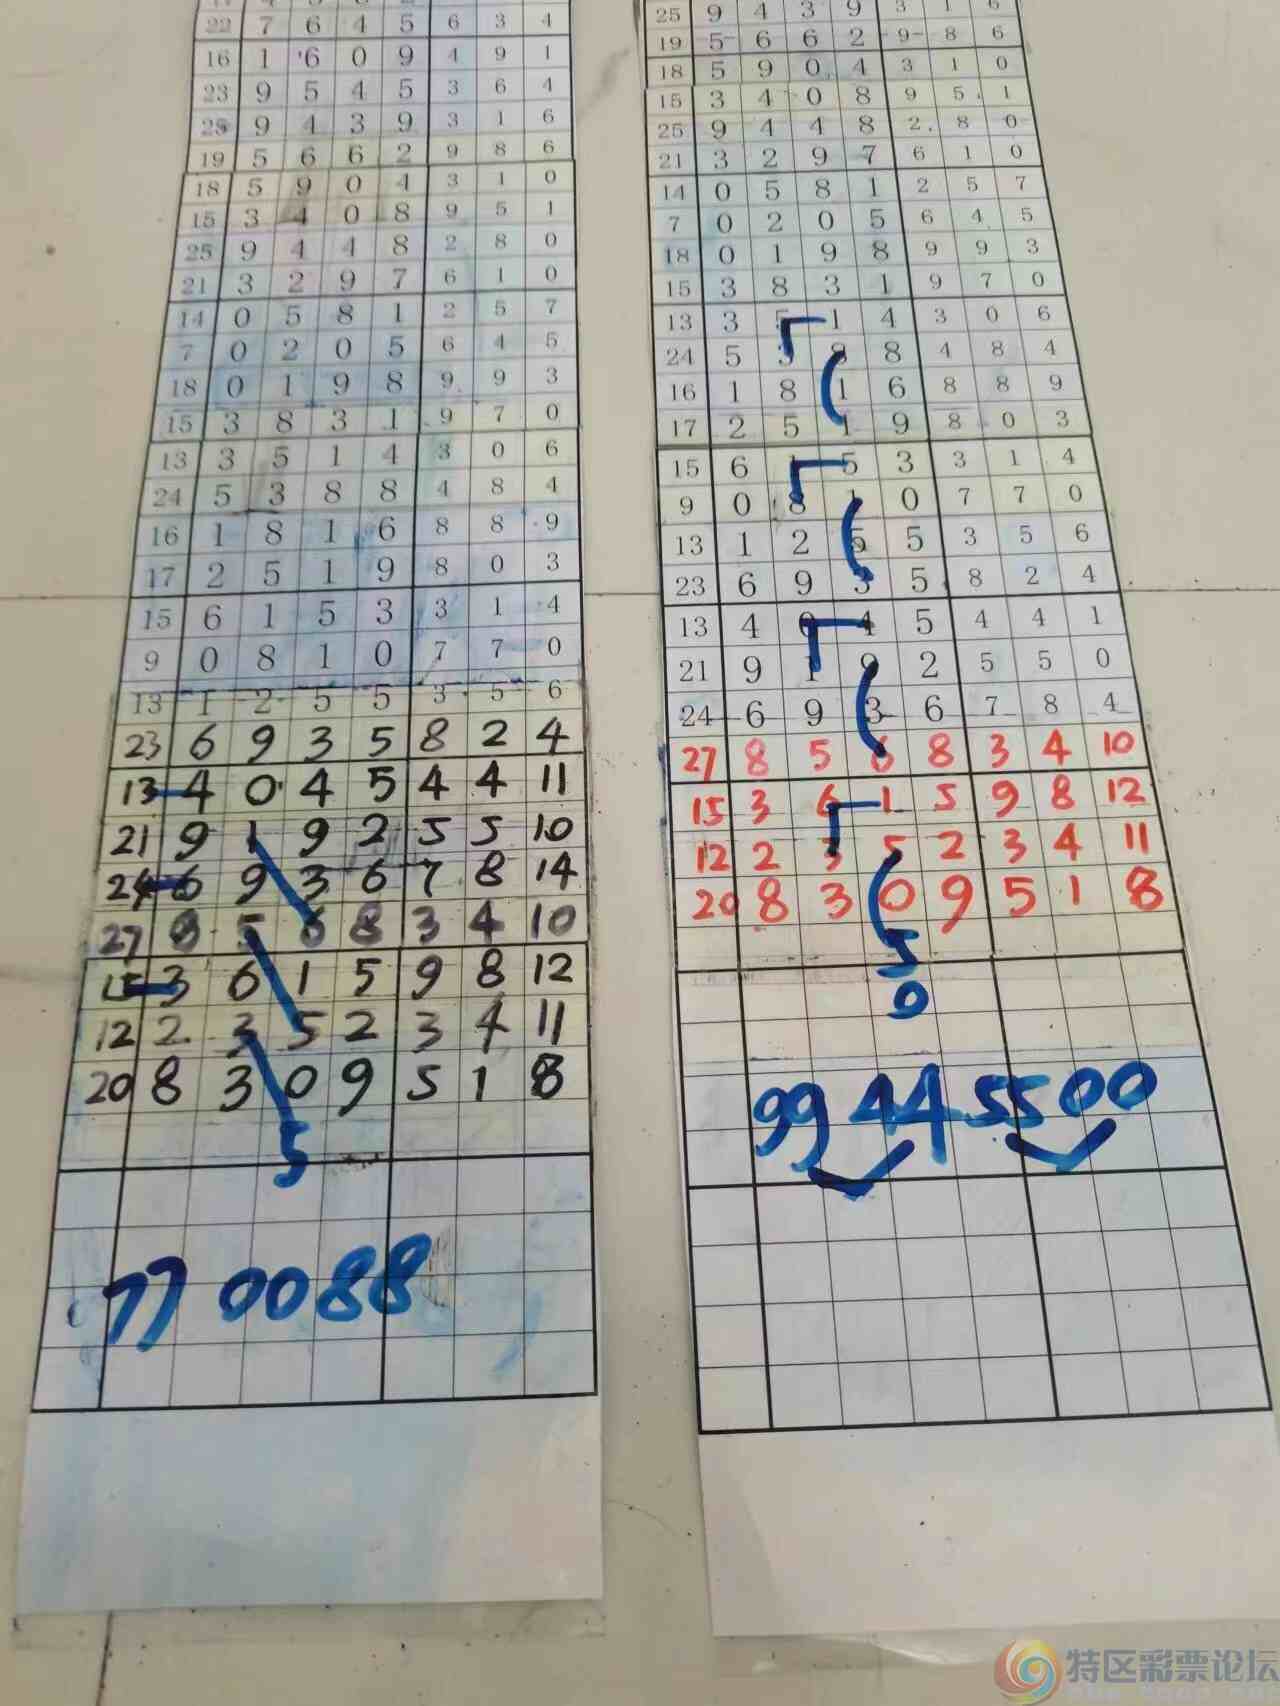 22 7 6 4 5 6 3 4
16 1 6 0 9 4 9 1
23 9 5 4 5 3 6 4
25 9 4 3 9 3 1 6
19 5 6 6 2 9 8 6
18 5 9 0 4 3 1 0
15 3 4 0 8 9 5 1
25 9 4 4 8 2 8 0
21 3 2 9 7 6 1 0
14 0 5 8 1 2 5 7
7 0 2 0 5 6 4 5
18 0 1 9 8 9 9 3
15 3 8 3 1 9 7 0
13 3 5 1 4 3 0 6
24 5 3 8 8 4 8 4
16 1 8 1 6 8 8 9
17 2 5 1 9 8 0 3
15 6 1 5 3 3 1 4
9 0 8 1 0 7 7 0
13 1 2 5 5 3 5 6
23 6 9 3 5 8 2 4
13 4 0 4 5 4 4 11
21 9 1 9 2 5 5 10
24 6 9 3 6 7 8 14
27 8 5 6 8 3 4 10
15 3 6 1 5 9 8 12
12 2 3 5 2 3 4 11
20 8 3 0 9 5 1 8
5
77 00 88
25 9 4 3 9 3 1 6
19 5 6 6 2 9 8 6
18 5 9 0 4 3 1 0
15 3 4 0 8 9 5 1
25 9 4 4 8 2 8 0
21 3 2 9 7 6 1 0
14 0 5 8 1 2 5 7
7 0 2 0 5 6 4 5
18 0 1 9 8 9 9 3
15 3 8 3 1 9 7 0
13 3 5 1 4 3 0 6
24 5 3 8 8 4 8 4
16 1 8 1 6 8 8 9
17 2 5 1 9 8 0 3
15 6 1 5 3 3 1 4
9 0 8 1 0 7 7 0
13 1 2 5 5 3 5 6
23 6 9 3 5 8 2 4
13 4 0 4 5 4 4 1
21 9 1 9 2 5 5 0
24 6 9 3 6 7 8 4
27 8 5 6 8 3 4 10
15 3 6 1 5 9 8 12
12 2 3 5 2 3 4 11
20 8 3 0 9 5 1 8
5
0
99 44 55 00
特区彩票论坛